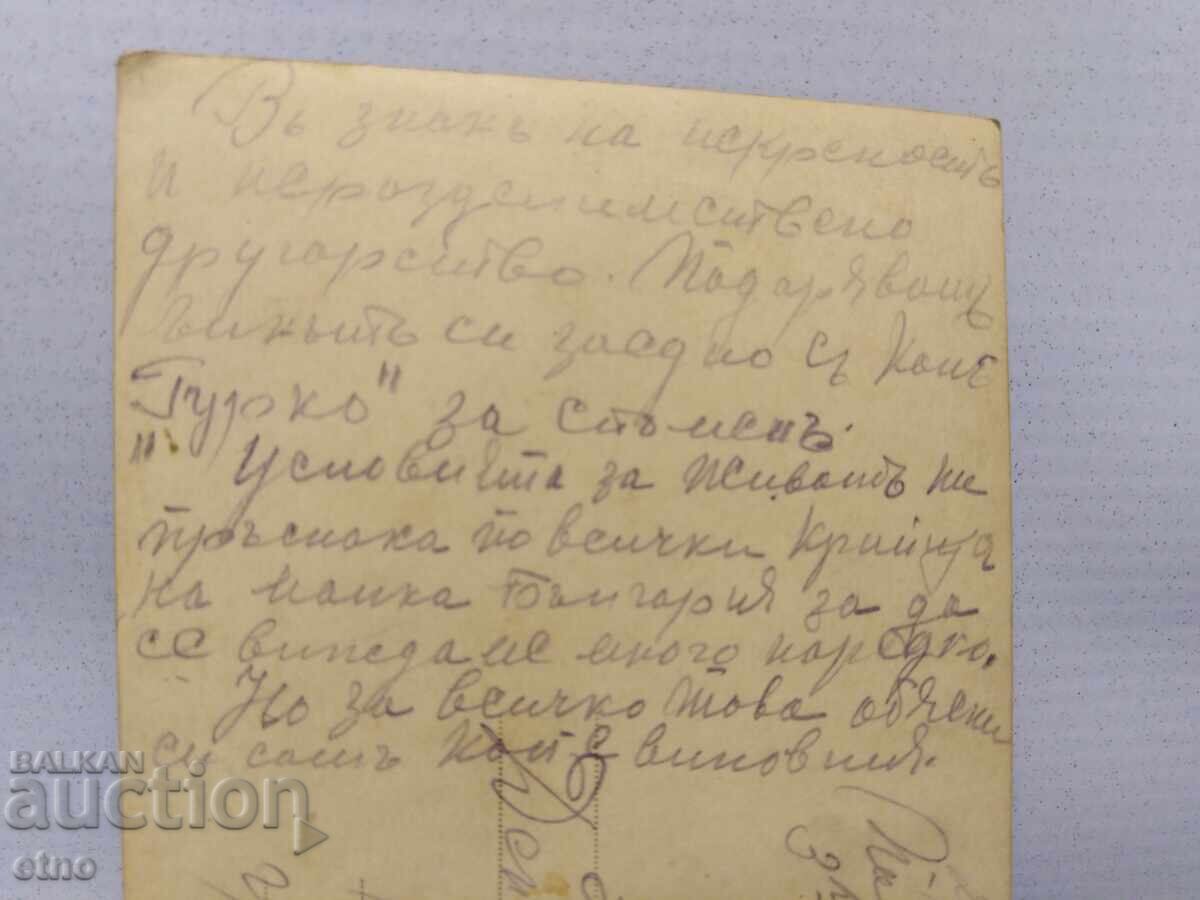 Въ знакъ на искреность
и
другарство. Подарявамъ
си заедно съ Коня
"Гурко" за споменъ.
" Условията за живота ни
пръснаха по всички Краища
на майка България за да
се виждаме много нарѣдко.
Но за всичко това обясни
си самъ кой е виновния.
BALKAN
auction
etno